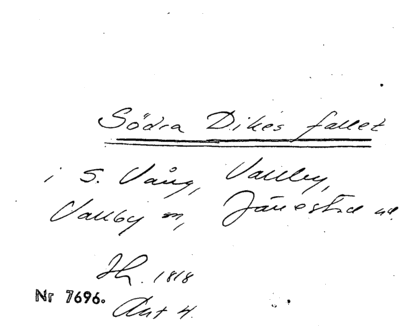 Södra Dikes fallet
i S. Vång, Vallby,
Vallby m, Järestad
Hl. 1818
Nr 7696.
Akt 4.